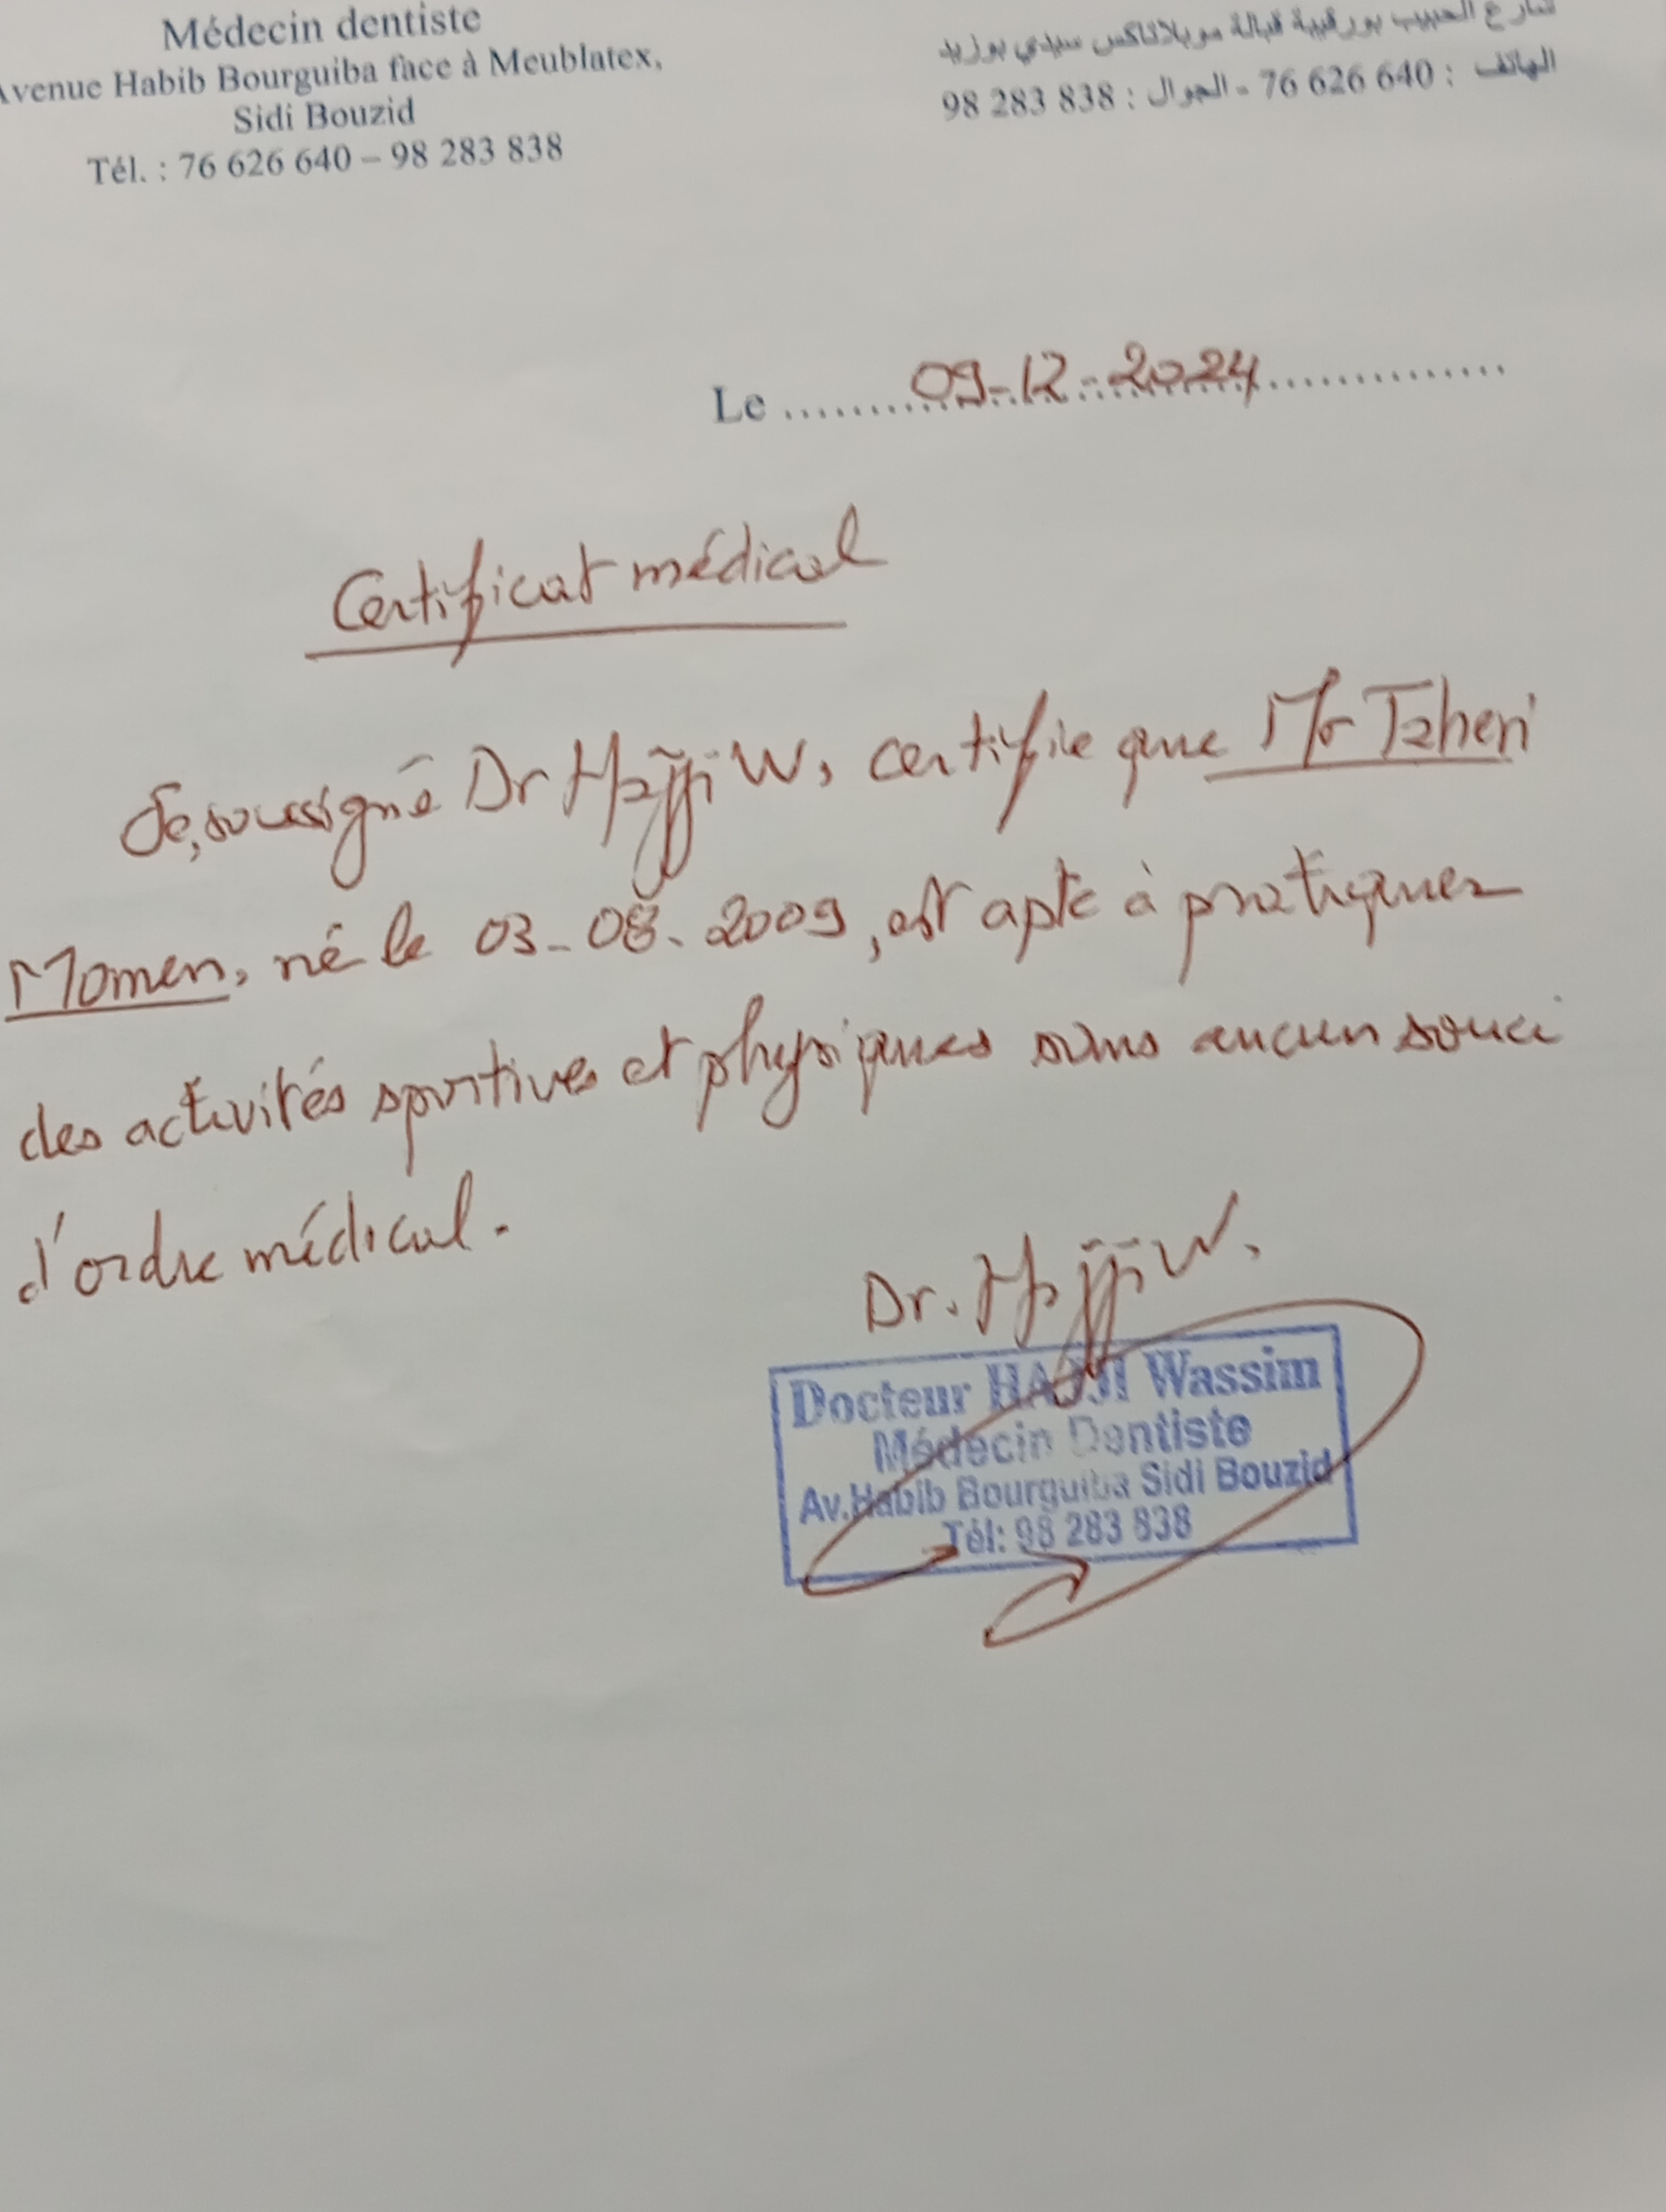 Médecin dentiste
Avenue Habib Bourguiba face à Meublatex,
Sidi Bouzid
Tél. : 76 626 640 – 98 283 838
شارع الحبيب بورقيبة قبالة موبلاتاكس سيدي بوزيد
الهاتف : 76 626 640 - الجوال : 98 283 838
Le 09-12-2024
Certificat médical
Je, soussigné Dr Hajji W, certifie que Mr Taheri
Momen, né le 03-08-2009, est apte à pratiquer
des activités sportives et physiques sans aucun souci
d'ordre médical.
Dr. Hajji W.
Docteur HAJJI Wassim
Médecin Dentiste
Av.Habib Bourguiba Sidi Bouzid
Tél: 98 283 838